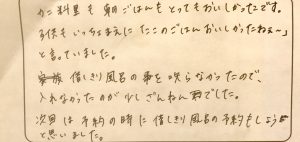 カニ料理も朝ごはんもとってもおいしかったです。
子供もいっちょまえに「ここのごはんおいしかったねぇ~」
と言っていました。
貸しきり風呂の事を知らなかったので、
入れなかったのが少しざんねんでした。
次回は予約の時に貸しきり風呂の予約もしよう
と思いました。